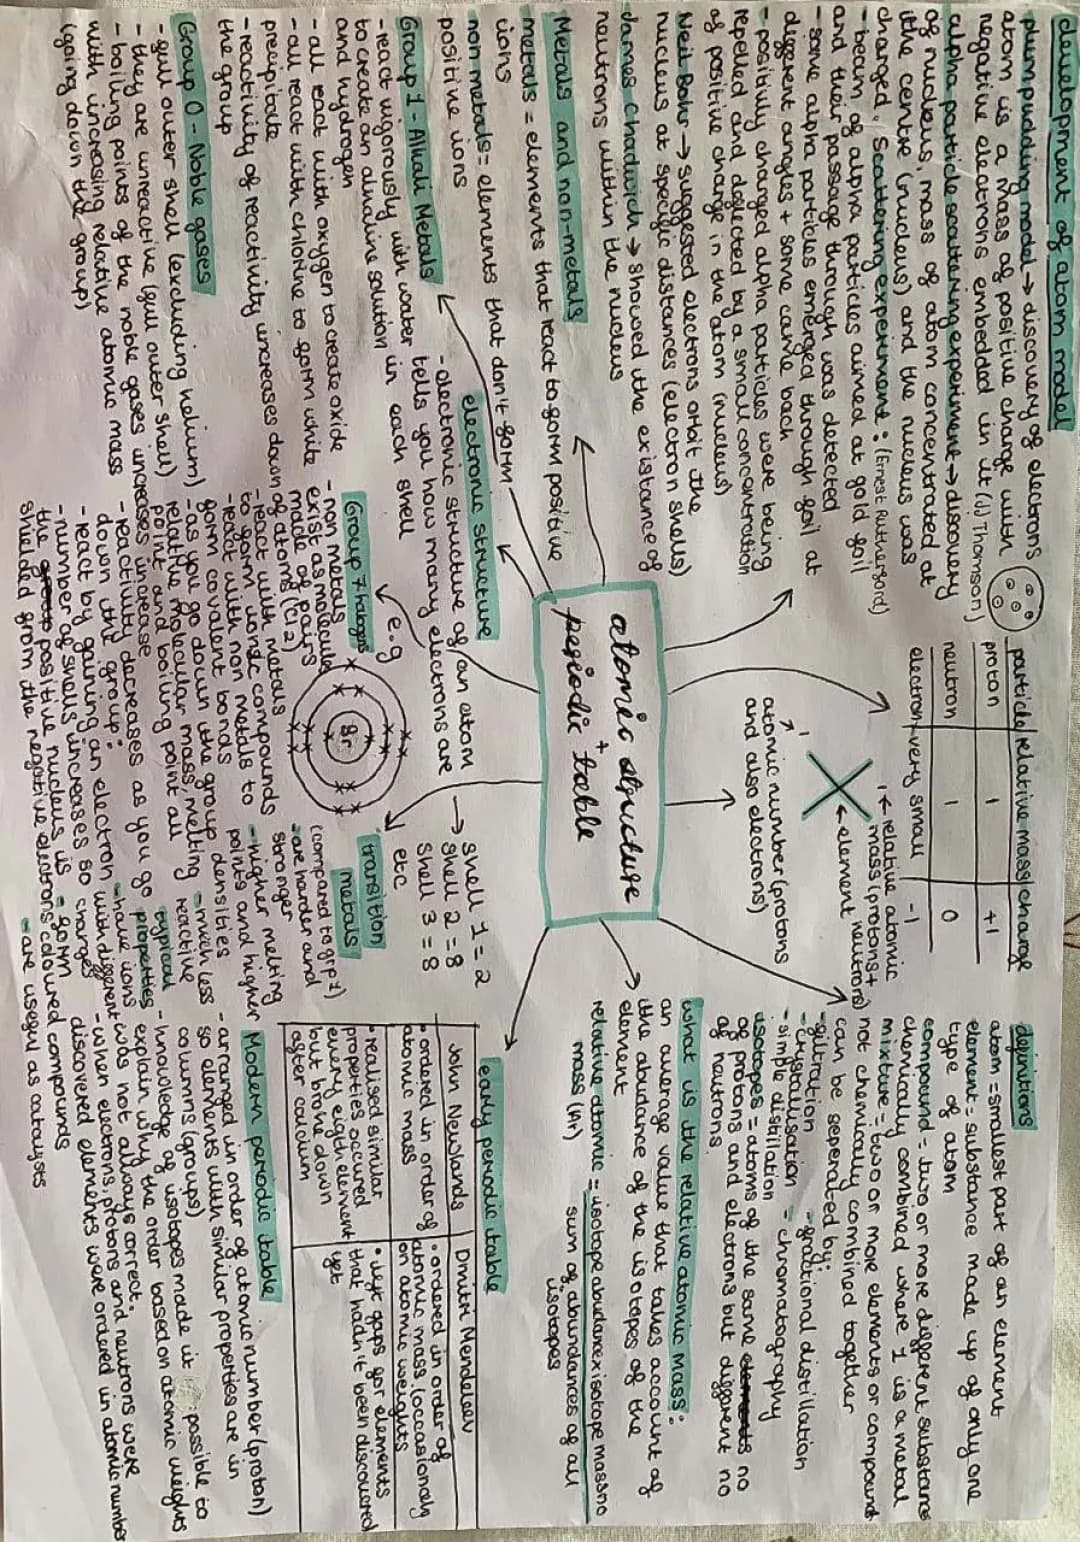 development of atom model
plum pudding model → discovery of electrons
atom is a mass of positive charge with
negative electrons embedded in it (JJ Thomson)
alpha particle scattering experiment → discovery
of nucleus, mass of atom concentrated at
the centre (nucleus) and the nucleus was
charged. Scattering experiment: (Ernest Rutherford)
- beam of alpha particles aimed at gold foil
and their passage through was detected
- some alpha particles emerged through foil at
different angles + some came back
- positively charged alpha particles were being
repelled and deflected by a small concentration
of positive charge in the atom (nucleus)
Neil Bohr → suggested electrons orbit the
nucleus at specific distances (electron shells)
James Chadwich → showed the existance of
neutrons within the nucleus
particle relative mass charge
proton 1 +1
neutron 1 0
electron very small -1
1 ← relative atomic
mass (protons +
neutrons)
← element
atomic number (protons
and also electrons)
definitions
atom = smallest part of an element
element = substance made up of only one
type of atom
compound = two or more different substans
chemically combined where 1 is a metal
mixture = two or more elements or compounds
not chemically combined together
can be seperated by:
- filtration - fractional distillation
- crystallisation - chromatography
- simple distillation
isotopes = atoms of the same no
of protons and electrons but different no
of neutrons
what is the relative atomic mass:
an average value that takes account of
the abudance of the isotopes of the
element
relative atomic mass (Ar) = isotope abudance x isotope mass no
sum of abundances of all
isotopes
atomic structure
+
periodic table
Metals and non-metals
metals = elements that react to form positive
ions
non metals = elements that don't form
positive ions
Group 1 - Alkali Metals
- react vigorously with water
to create an alkaline solution
and hydrogen
- all react with oxygen to create oxide
- all react with chlorine to form white
precipitate
- reactivity of reactivity increases down
the group
Group 0 - Noble gases
- full outer shell (excluding helium)
- they are unreactive (full outer shell)
- boiling points of the noble gases increases
with increasing relative atomic mass
(going down the group)
electronic structure
- electronic structure of an atom
tells you how many electrons are
in each shell
e.g
Br
→ shell 1 = 2
shell 2 = 8
shell 3 = 8
etc
Group 7 halogens
- non metals
exist as molecules
made of pairs
of atoms (Cl2)
- react with metals
to form ionic compounds
- react with non metals to
form covalent bonds
- as you go down the group
relative molecular mass, melting
point and boiling point all
increase
- reactivity decreases as you go
down the group:
- react by gaining an electron
- number of shells increases so
the positive nucleus is
shielded from the negative electrons
transition
metals
(compared to grp 1)
- are harder and
stronger
- higher melting
points and higher
densities
- much less
reactive
typical
properties
- have ions
with different
charges
- form
coloured compounds
- are useful as catalysts
early periodic table
John Newlands Dmitri Mendeleev
• ordered in order of
atomic mass
• realised similar
properties occured
every eigth element
but broke down
after caudium
• ordered in order of
atomic mass (occasionally
on atomic weights
• left gaps for elements
that hadn't been discovered
yet
Modern periodic table
- arranged in order of atomic number (proton)
so elements with similar properties are in
columns (groups)
- knowledge of isotopes made it possible to
explain why the order based on atomic weights
was not always correct.
- when electrons, protons and neutrons were
discovered elements were ordered in atomic number